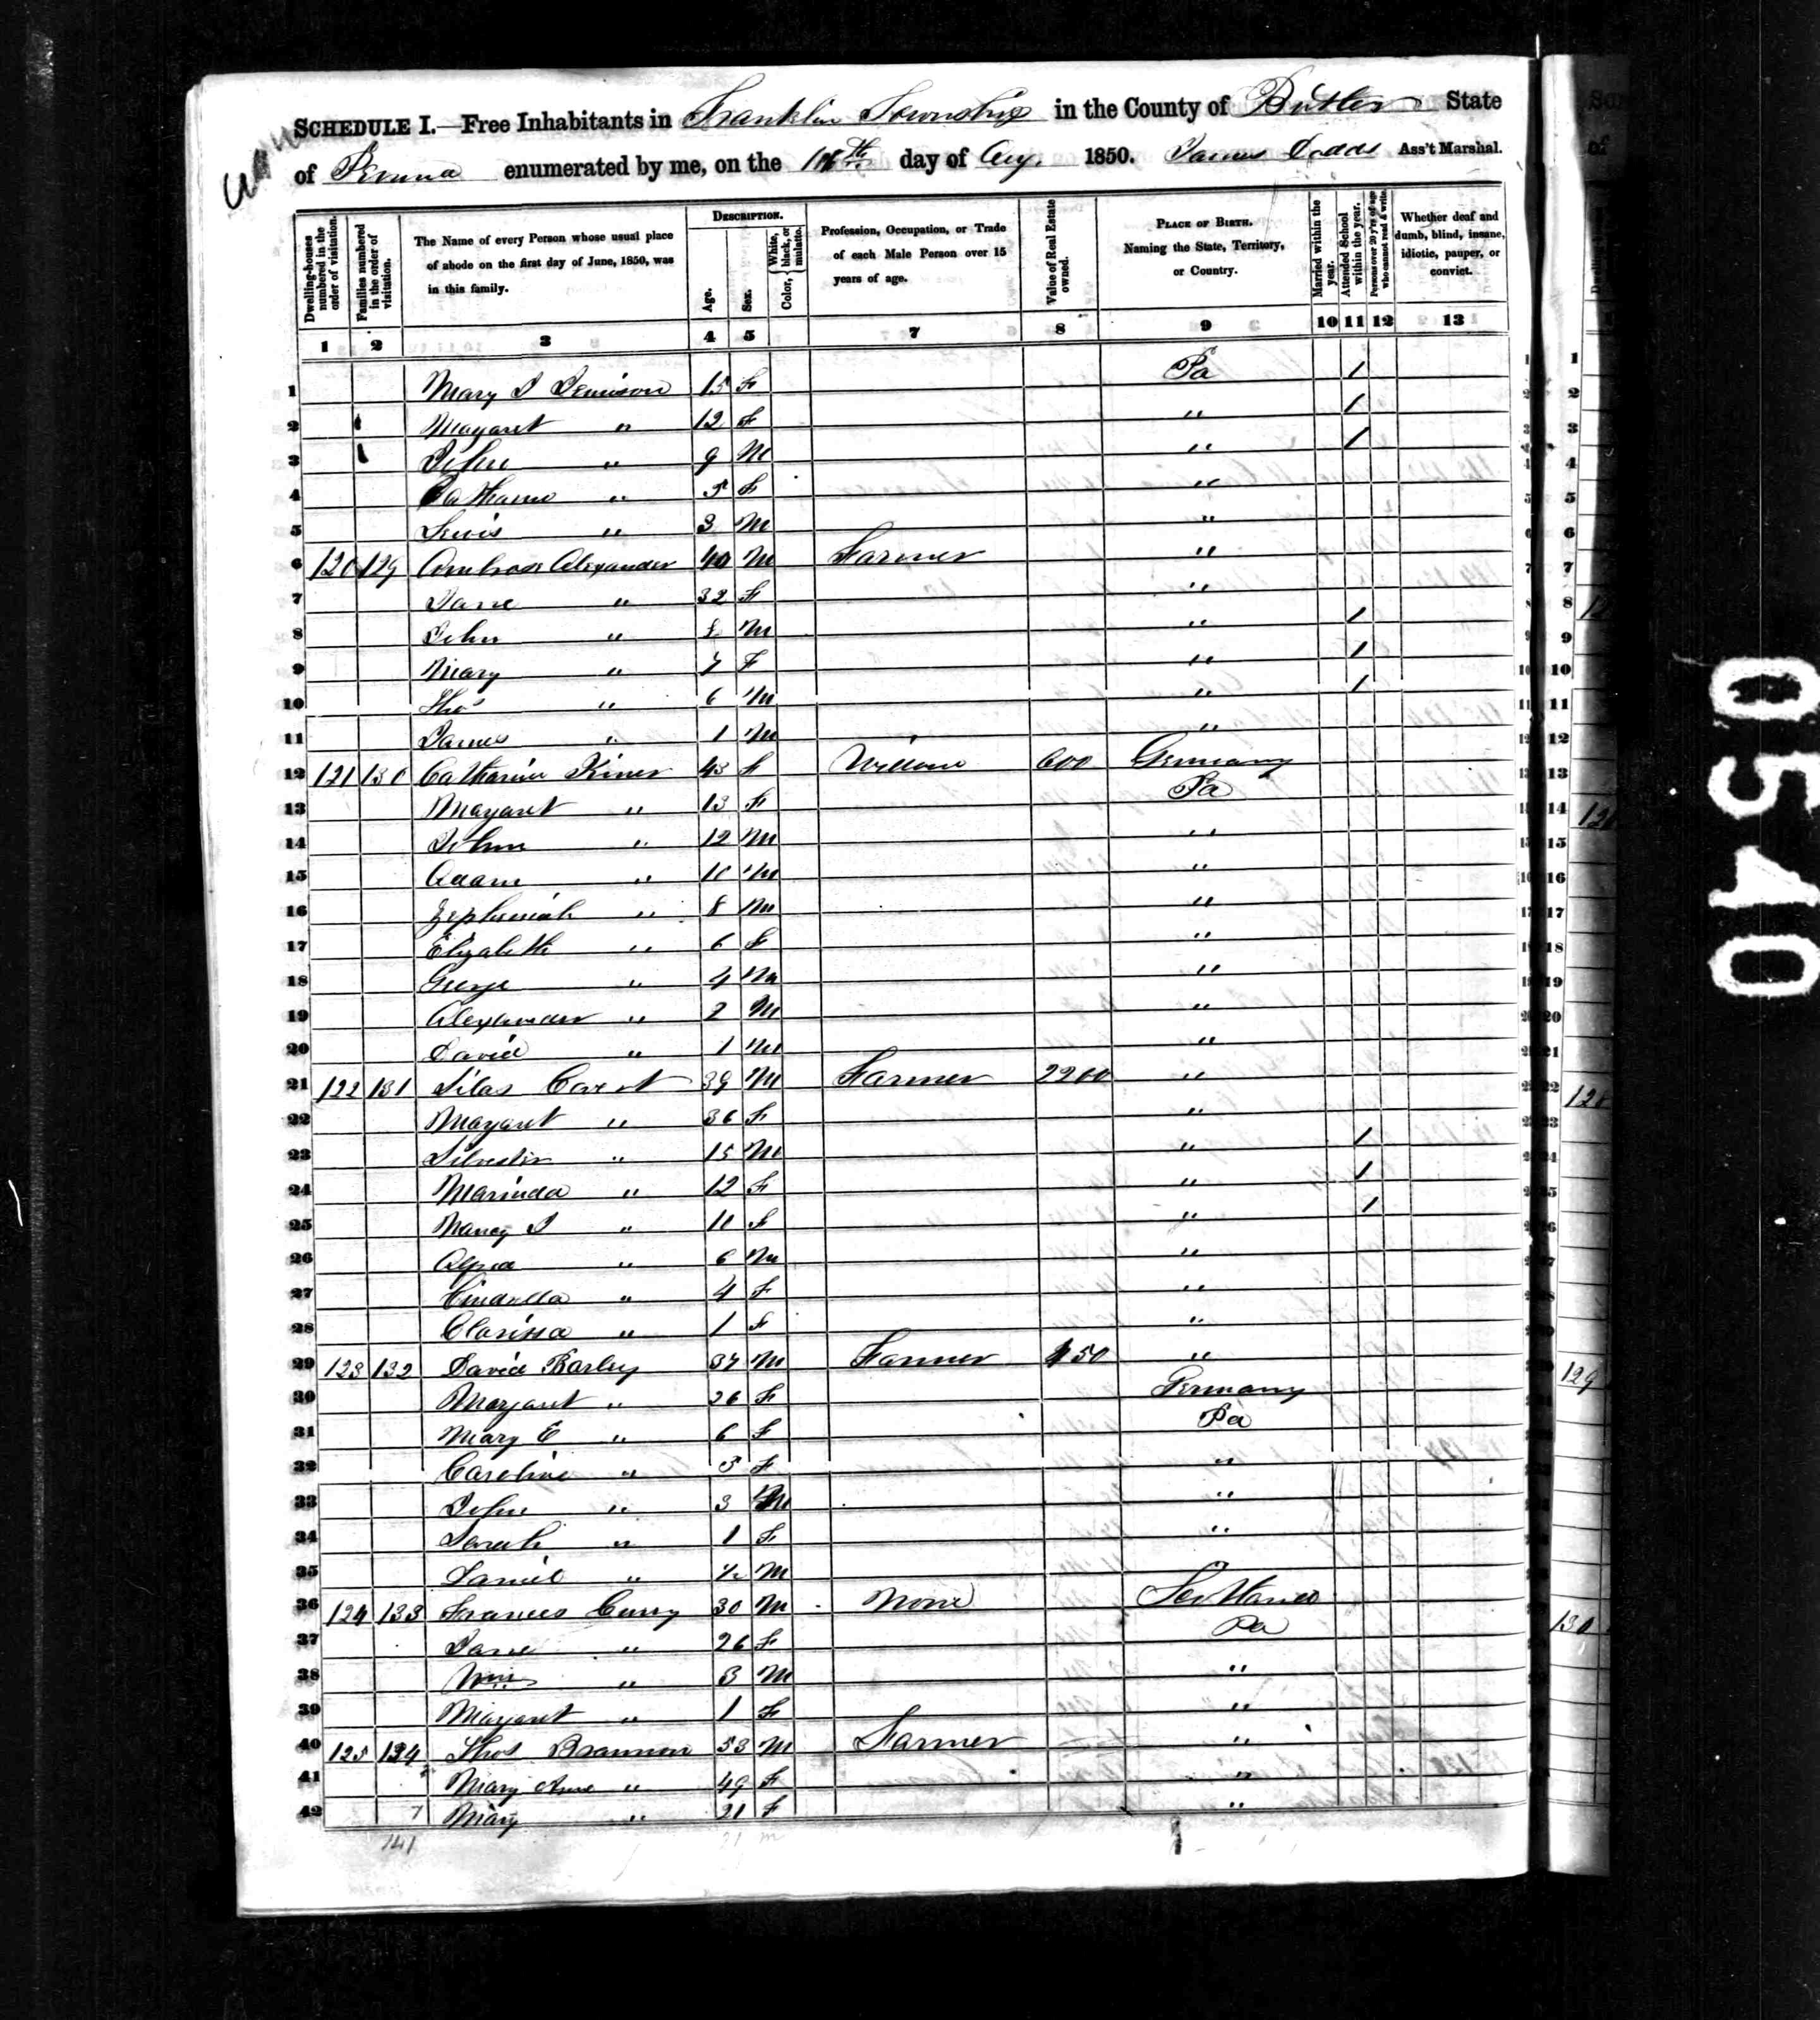 SCHEDULE I.—Free Inhabitants in Franklin Township in the County of Butler State
of Penna enumerated by me, on the day of Aug. 1850. James Dodds Ass't Marshal.
Dwelling-houses numbered in the order of visitation.
Families numbered in the order of visitation.
The Name of every Person whose usual place of abode on the first day of June, 1850, was in this family.
DESCRIPTION.
Age.
Sex.
Color, White, black, or mulatto.
Profession, Occupation, or Trade of each Male Person over 15 years of age.
Value of Real Estate owned.
PLACE OF BIRTH. Naming the State, Territory, or Country.
Married within the year.
Attended School within the year.
Persons over 20 y'rs of age who cannot read & write.
Whether deaf and dumb, blind, insane, idiotic, pauper, or convict.
1 2 3 4 5 7 8 9 10 11 12 13
1 Mary J 15 F Pa 1
2 Magaret " 12 F " 1
3 John " 9 M " 1
4 " 5 F "
5 Lewis " 3 M "
6 120 129 Ambrose Alexander 40 M Farmer "
7 Jane " 32 F "
8 John " 8 M " 1
9 Mary " 7 F " 1
10 Thos " 6 M " 1
11 James " 1 M "
12 121 130 Catharine Kiner 43 F Widow 600 Germany
13 Magaret " 13 F Pa
14 John " 12 M "
15 Adam " 10 M "
16 Zepheniah " 8 M "
17 Elizabeth " 6 F "
18 George " 4 M "
19 Alexander " 2 M "
20 David " 1 M "
21 122 131 Silas Covert 39 M Farmer 2200 "
22 Magaret " 36 F "
23 Silvester " 15 M " 1
24 Marinda " 12 F " 1
25 Nancy J " 10 F " 1
26 " 6 M "
27 " 4 F "
28 Clarissa " 1 F "
29 123 132 David Barley 37 M Farmer "
30 Margaret " 26 F Germany
31 Mary E " 6 F Pa
32 Caroline " 5 F "
33 John " 3 M "
34 Sarah " 1 F "
35 Daniel " M "
36 124 133 Frances Curry 30 M None Scotland
37 Jane " 26 F Pa
38 Wm " 3 M "
39 Magaret " 1 F "
40 125 134 Thos Brannon 53 M Farmer "
41 Mary Ann " 49 F "
42 Mary " 21 F "
141
21 m
0540